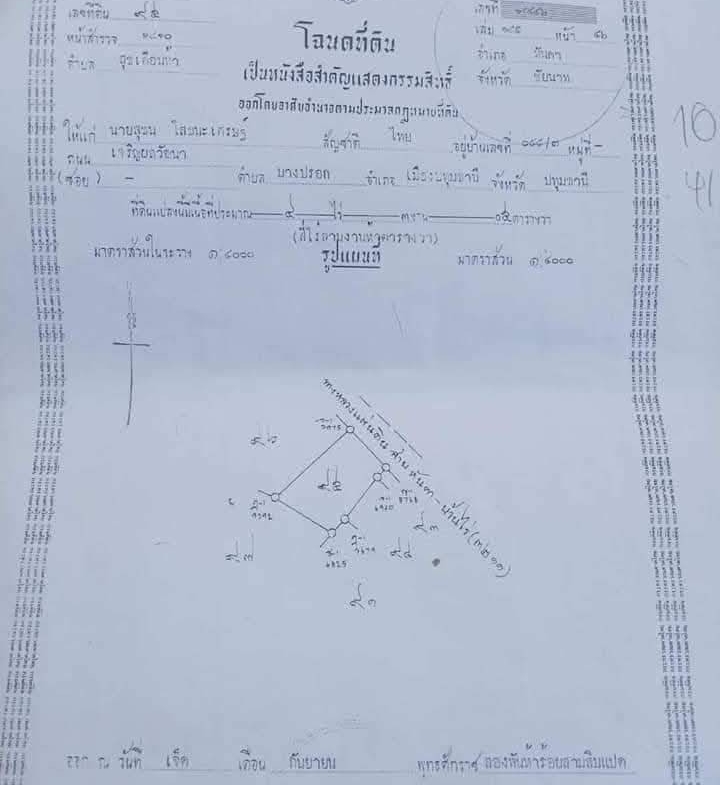 เลขที่ดิน ๙๕
เลขที่
หน้าสำรวจ
เล่ม หน้า ๕๖
ตำบล สุขเดือนห้า
อำเภอ หันคา
จังหวัด ชัยนาท
โฉนดที่ดิน
เป็นหนังสือสำคัญแสดงกรรมสิทธิ์
ออกโดยอาศัยอำนาจตามประมวลกฎหมายที่ดิน
ให้แก่ นายสุชน สัญชาติ ไทย อยู่บ้านเลขที่ ๑๙๙/๓ หมู่ที่ -
ถนน
(ซอย) - ตำบล บางปรอก อำเภอ เมืองปทุมธานี จังหวัด ปทุมธานี
ที่ดินแปลงนี้มีเนื้อที่ประมาณ ๔ ไร่ ๓ งาน ๐๕ ตารางวา
(สี่ไร่สามงานห้าตารางวา)
มาตราส่วนในระวาง ๑:๔๐๐๐ รูปแผนที่ มาตราส่วน ๑:๔๐๐๐
ทางหลวงแผ่นดิน สาย หันคา - บ้านไร่ (๓๒๑๓)
๙๖
๙๕
๙๓
๙๗
๙๔
๙๑
ออก ณ วันที่ เจ็ด เดือน กันยายน พุทธศักราช สองพันห้าร้อยสามสิบแปด
10
41